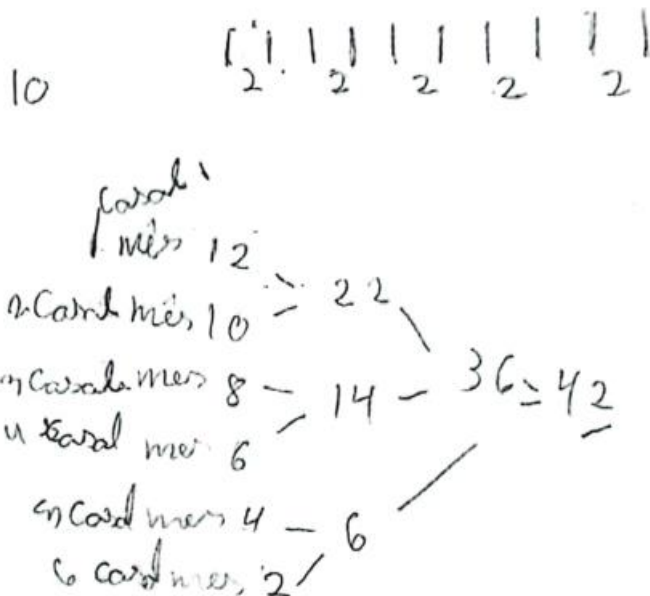 10
2 2 2 2 2
casal 1
mês 12
2 Casal mês 10
22
3 Casal mes 8
14
36 = 42
4 casal mes 6
5 Casal mes 4
6
6 casal mes 2